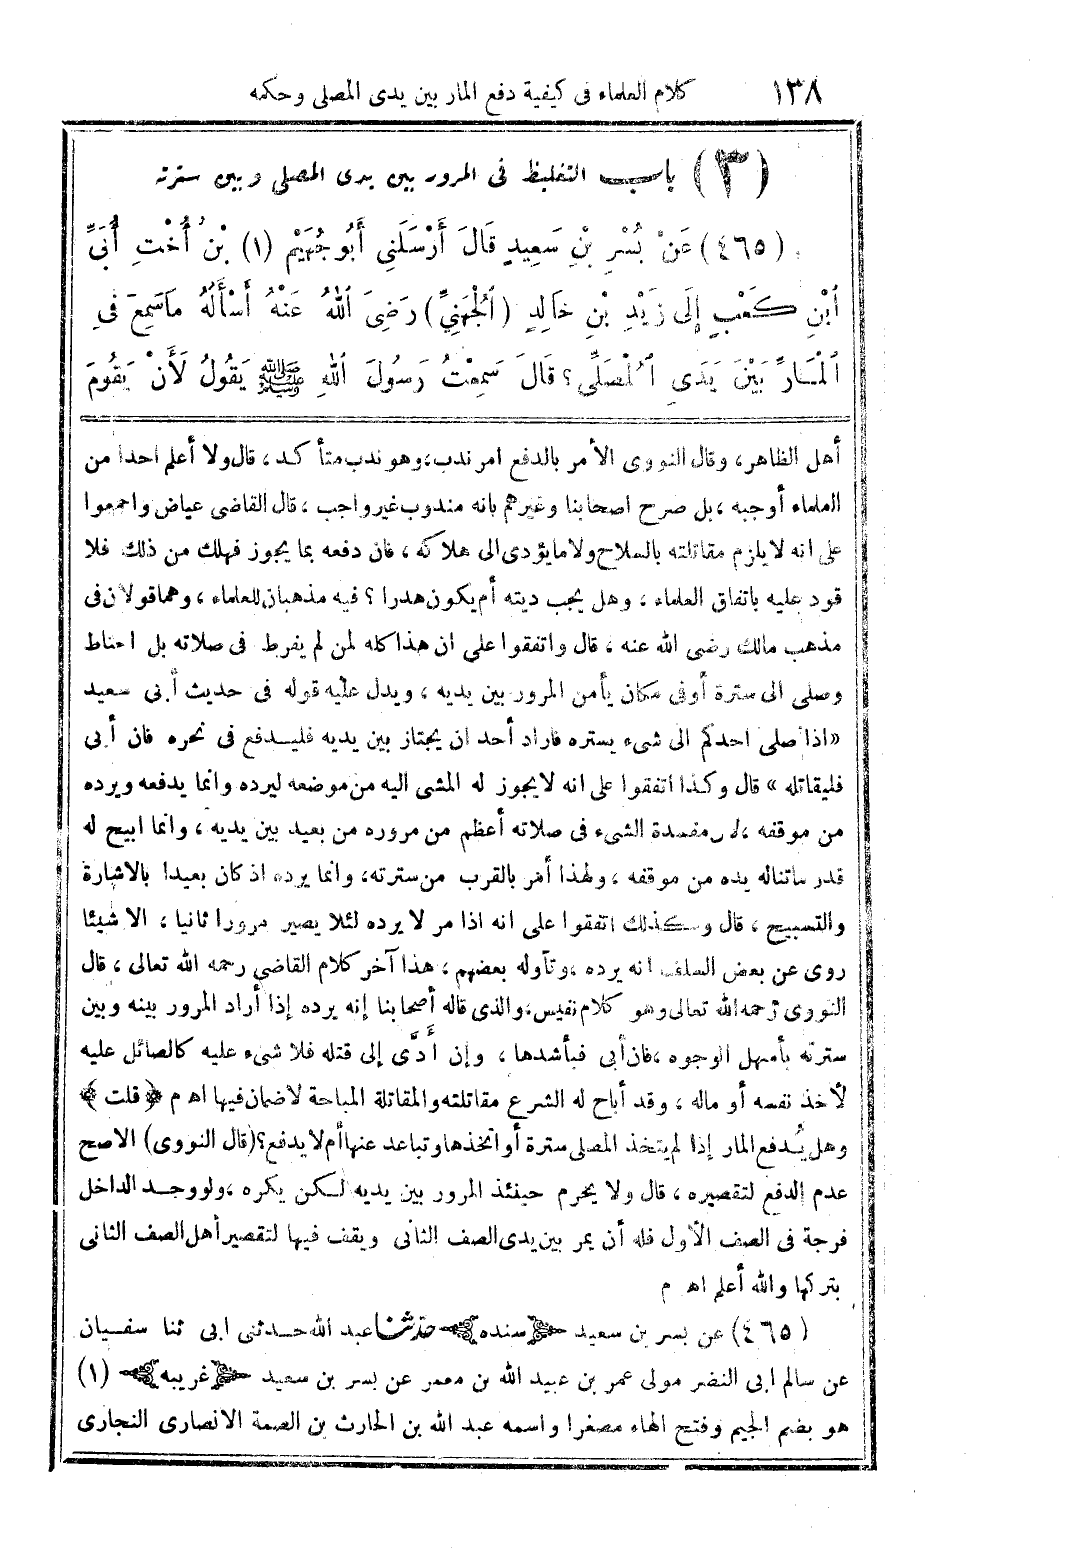 ١٣٨ كلام العلماء فى كيفية دفع المار بين يدى المصلى وحكمه
(٣) باب التغليظ فى المرور بين يدى المصلى وبين سترته
(٤٦٥) عَنْ بُسْرِ بْنِ سَعِيدٍ قَالَ أَرْسَلَنِى أَبُو جُهَيْمٍ (١) بْنُ أُخْتِ أُبَىِّ
ابْنِ كَعْبٍ إِلَى زَيْدِ بْنِ خَالِدٍ (الْجُهَنِىِّ) رَضِىَ اللهُ عَنْهُ أَسْأَلُهُ مَا سَمِعَ فِى
الْمَارِّ بَيْنَ يَدَىِ الْمُصَلِّى؟ قَالَ سَمِعْتُ رَسُولَ اللهِ ﷺ يَقُولُ لَأَنْ يَقُومَ
أهل الظاهر، وقال النووى الأمر بالدفع امر ندب، وهو ندب متأكد، قال ولا أعلم احدا من
العلماء أوجبه، بل صرح اصحابنا وغيرهم بانه مندوب غير واجب، قال القاضى عياض واجمعوا
على انه لا يلزم مقاتلته بالسلاح ولا ما يؤدى الى هلاكه، فان دفعه بما يجوز فهلك من ذلك فلا
قود عليه باتفاق العلماء، وهل يجب ديته أم يكون هدرا؟ فيه مذهبان للعلماء، وهما قولان فى
مذهب مالك رضى الله عنه، قال واتفقوا على ان هذا كله لمن لم يفرط فى صلاته بل احتاط
وصلى الى سترة أو فى مكان يأمن المرور بين يديه، ويدل عليه قوله فى حديث أبى سعيد
«اذا صلى احدكم الى شىء يستره فاراد أحد ان يجتاز بين يديه فليدفع فى نحره فان أبى
فليقاتله» قال وكذا اتفقوا على انه لا يجوز له المشى اليه من موضعه ليرده وانما يدفعه ويرده
من موقفه، لان مفسدة الشىء فى صلاته أعظم من مروره من بعيد بين يديه، وانما ابيح له
قدر ماتناله يده من موقفه، ولهذا أمر بالقرب من سترته، وانما يرده اذ كان بعيدا بالاشارة
والتسبيح، قال وكذلك اتفقوا على انه اذا مر لا يرده لئلا يصير مرورا ثانيا، الا شيئا
روى عن بعض السلف انه يرده، وتأوله بعضهم، هذا آخر كلام القاضى رحمه الله تعالى، قال
النووى رحمه الله تعالى وهو كلام نفيس، والذى قاله أصحابنا إنه يرده إذا أراد المرور بينه وبين
سترته بأسهل الوجوه، فان أبى فبأشدها، وإن أدَّى إلى قتله فلا شىء عليه كالصائل عليه
لأخذ نفسه أو ماله، وقد أباح له الشرع مقاتلته والمقاتلة المباحة لا ضمان فيها اه م ﴿قلت﴾
وهل يُدفع المار إذا لم يتخذ المصلى سترة أو اتخذها وتباعد عنها أم لا يدفع؟ (قال النووى) الاصح
عدم الدفع لتقصيره، قال ولا يحرم حينئذ المرور بين يديه لكن يكره، ولو وجد الداخل
فرجة فى الصف الأول فله أن يمر بين يدى الصف الثانى ويقف فيها لتقصير أهل الصف الثانى
بتركها والله أعلم اه م
(٤٦٥) عن بسر بن سعيد ﴿سنده﴾ حدثنا عبد الله حدثنى ابى ثنا سفيان
عن سالم ابى النضر مولى عمر بن عبيد الله بن معمر عن بسر بن سعيد ﴿غريبه﴾ (١)
هو بضم الجيم وفتح الهاء مصغرا واسمه عبد الله بن الحارث بن الصمة الانصارى النجارى